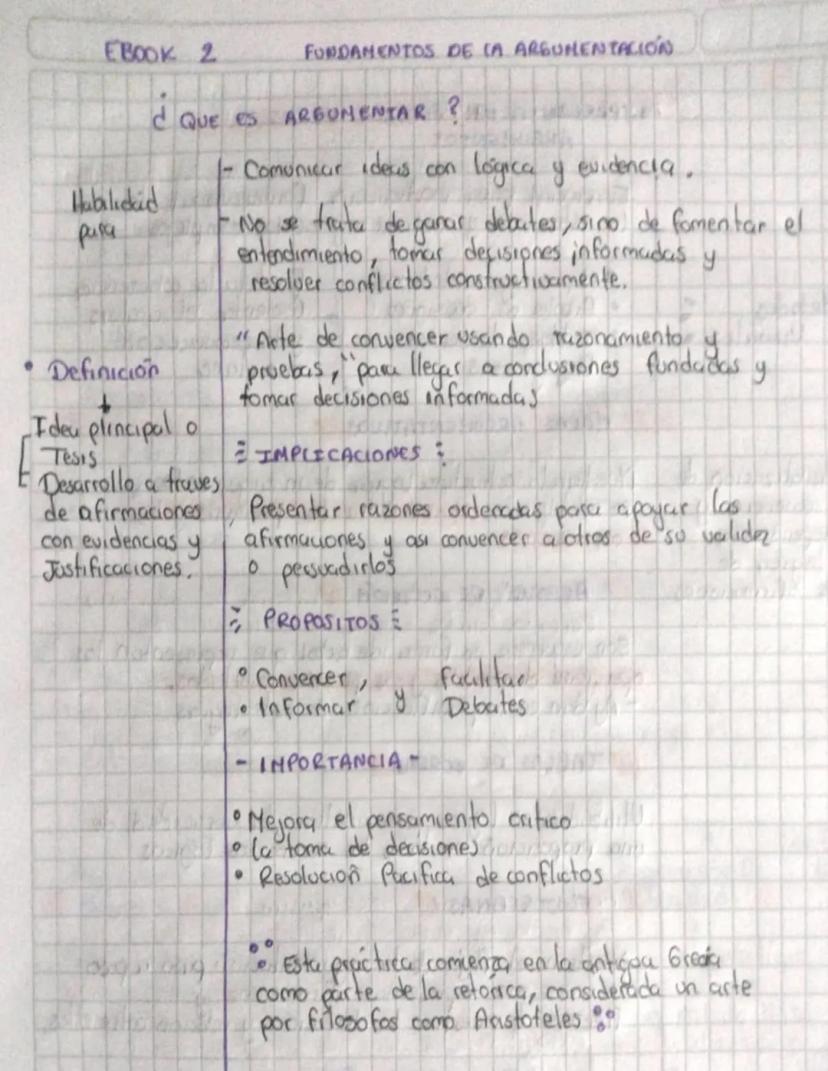 EBOOK 2 FUNDAMENTOS DE LA ARGUMENTACIÓN
¿ QUE ES ARGUMENTAR ?
Habilidad
para
- Comunicar ideas con lógica y evidencia.
- No se trata de ganar debates, sino de fomentar el
entendimiento, tomar decisiones informadas y
resolver conflictos constructivamente.
• Definición
↓
Idea principal o
Tesis
Desarrollo a traves
de afirmaciones
con evidencias y
Justificaciones.
"Arte de convencer usando razonamiento y
pruebas," para llegar a conclusiones fundadas y
tomar decisiones informadas
IMPLICACIONES
Presentar razones ordenadas para apoyar las
afirmaciones y asi convencer a otros de su validez
o persuadirlos
PROPOSITOS
• Convencer, facilitar
• Informar y Debates
- IMPORTANCIA -
• Mejora el pensamiento critico
• la toma de decisiones
• Resolución Pacifica de conflictos
Esta práctica comienza en la antigua Grecia
como parte de la retorica, considerada un arte
por filosofos como Aristoteles